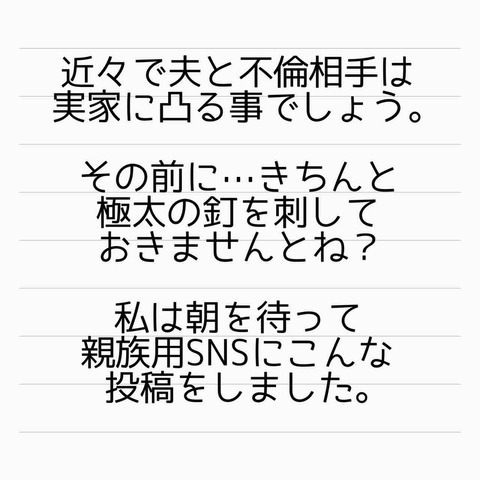 近々で夫と不倫相手は
実家に凸る事でしょう。
その前に…きちんと
極太の釘を刺して
おきませんとね？
私は朝を待って
親族用SNSにこんな
投稿をしました。